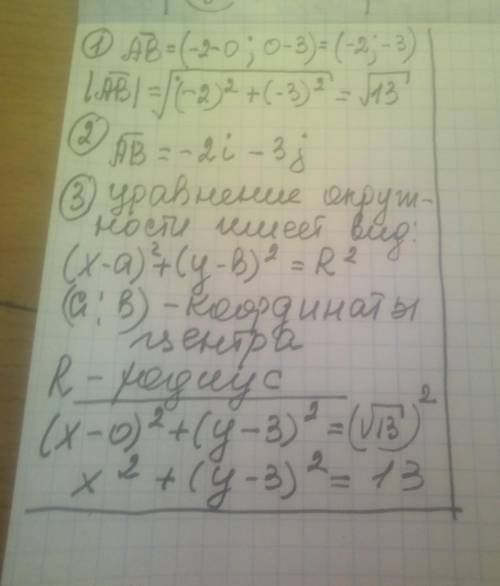 ① AB = (-2-0; 0-3) = (-2; -3)
|AB| = √(-2)² + (-3)² = √13
② AB = -2i - 3j
③ Уравнение окруж-
ности имеет вид:
(x-a)² + (y-b)² = R²
(a; b) - координаты
центра
R - радиус
(x-0)² + (y-3)² = (√13)²
x² + (y-3)² = 13